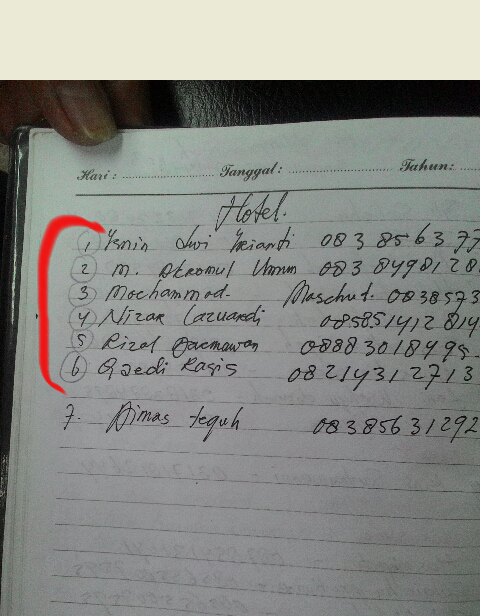 Hari : Tanggal : Tahun:
Hotel.
1 Ismin Dwi Irianti 083 856 3 77
2 M. Akromul Umum 083 8498128
3 Mochammad. Maschut. 0838573
4 Nizar Lazuardi 085851412814
5 Rizal Darmawan 08883018495
6 Gaedi Ragis 082143127 13
7. Dimas teguh 08385631292